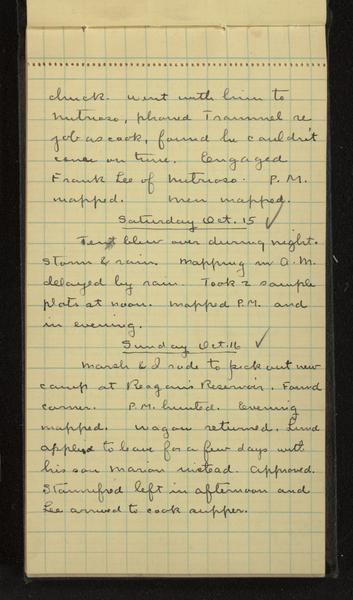 chuck. went with him to
Nutrioso, phoned Trammel re
job as cook, found he couldn't
come on time. Engaged
Frank Lee of Nutrioso. P.M.
mapped. Men mapped.
Saturday Oct. 15 ✓
Tent blew over during night.
Storm & rain. Mapping in A.M.
delayed by rain. Took 2 sample
plots at noon. Mapped P.M. and
in evening.
Sunday Oct. 16 ✓
Marsh & I rode to pick out new
camp at Reagan's Reservoir. Found
corner. P.M. hunted. Evening
mapped. Wagon returned. Lund
applied to leave for a few days with
his son Marion instead. Approved.
left in afternoon and
Lee arrived to cook supper.